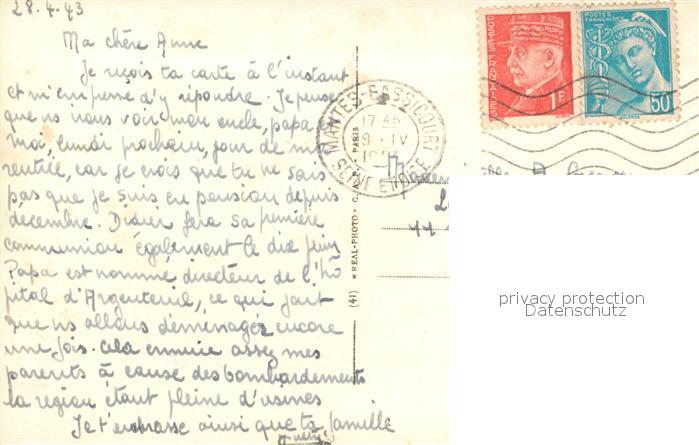 28.4.43
Ma chère Anne
Je reçois ta carte à l'instant
et m'empresse d'y répondre. Je pense
que ns nous voir mon oncle, papa
moi, lundi prochain, jour de ma
rentrée, car je crois que tu ne sais
pas que je suis en pension depuis
décembre. Didier fera sa première
communion également le dix juin
Papa est nommé directeur de l'hô
pital d'Argenteuil, ce qui fait
que ns allons déménager encore
une fois. Cela ennuie assez mes
parents à cause des bombardements
la région étant pleine d'usines
Je t'embrasse ainsi que ta famille
(41) "REAL-PHOTO" PARIS
MANTES-GASSICOURT
17 45
9 IV
SEINE ET OISE
POSTES FRANÇAISES
1F
POSTES FRANÇAISES
50
privacy protection
Datenschutz